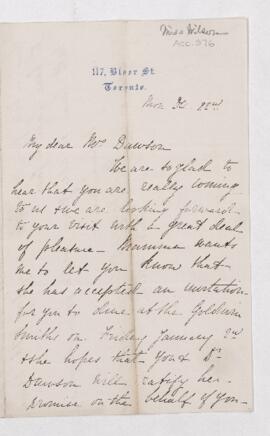 Miss Wilson
Acc. 976
117, Bloor St.
Toronto.
My dear Mrs Dawson
We are so glad to
hear that you are really coming
to us & we are looking forward
to your visit with a great deal
of pleasure – Mamma wants
me to let you know that
she has accepted an invitation
for you to dine at the Goldwin
Smiths on Friday January 2nd
& she hopes that you & Dr
Dawson will ratify her
promise on the behalf of you –